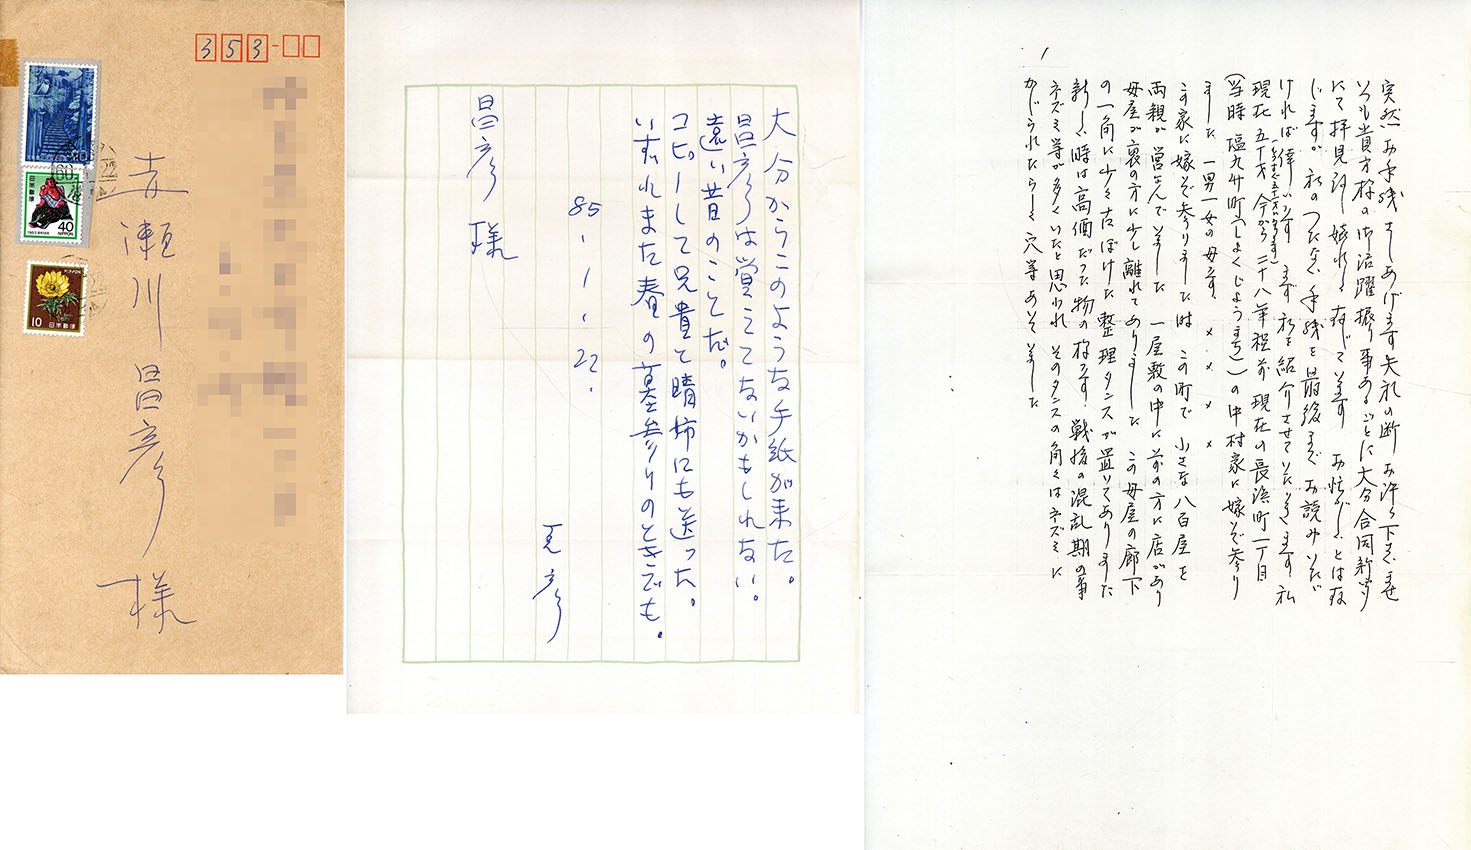 353-
赤瀬川昌彦
様
40
NIPPON
日本郵便
10
日本郵便
大分からこのような手紙が来た。
昌彦は覚えてないかもしれない。
遠い昔のことだ。
コピーして兄貴と晴姉にも送った。
いずれまた春の墓参りのときでも。
85.1.22.
克彦
昌彦様
1
突然お手残さしあげます失礼の断お許し下さいませ
いつも貴方様の御活躍振り事あるごとに大分合同新聞
にて拝見致し嬉れしく存じています お忙がしいとは存
じますが 私のつたない手残を最後までお読みいただ
ければ倖いです まず私を紹介させていただきます 私
現在五十才 今から二十八年程前 現在の長浜町一丁目
(当時 塩九升町(しよくじようまち))の中村家に嫁いで参り
ました 一男一女の母です
× × × ×
この家に嫁いで参りました時は この町で 小さな八百屋を
両親が営なんでいました 一屋敷の中に前の方に店があり
母屋が裏の方に少し離れてありました この母屋の廊下
の一角に少々古ぼけた整理タンスが置いてありました
新しい時は高価だった物の様です 戦後の混乱期の事
ネズミ等が多くいたと思われ そのタンスの角々はネズミに
かじられたらしく穴等あいていました